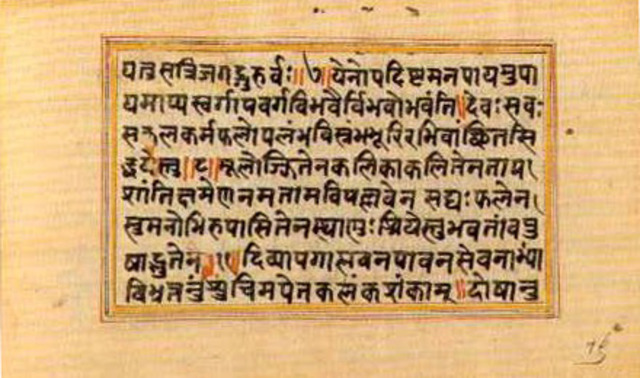 यत्र सत्रिजगद्गुरुर्वः॥७॥येनोपदिष्टमनपायमुपा
यमाप्यस्वर्गापवर्गविभवैर्विभवोभवंति॥देवः सवः
सकलकर्मफलोपलंभविस्रंभभूरिरभिवाञ्छितसि
द्धदेस्तु॥८॥मूलोज्झितेनकलिकाकलितेनतापा
शांतिक्षमेणनमतामविपल्लवेन सद्यःफलेन
सुमनोभिरुपासितेनस्थाणुःश्रियेस्तुभवतांवपु
षाद्भुतेन॥९॥दिव्यापगास्नवनपावनसेवनाभ्यां
बिभ्रत्तनुंशुचिमपेतकलंकशंकाम्॥दोषानु